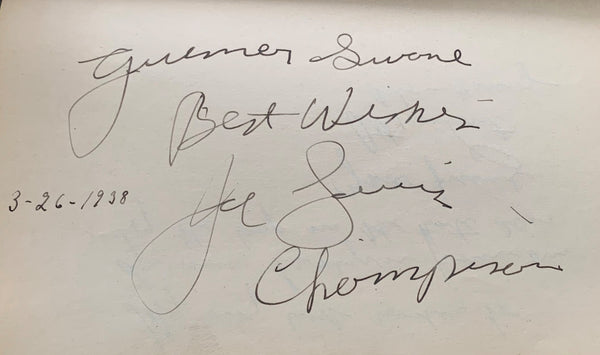 Best Wishes
3-26-1938
Joe Louis
Champion